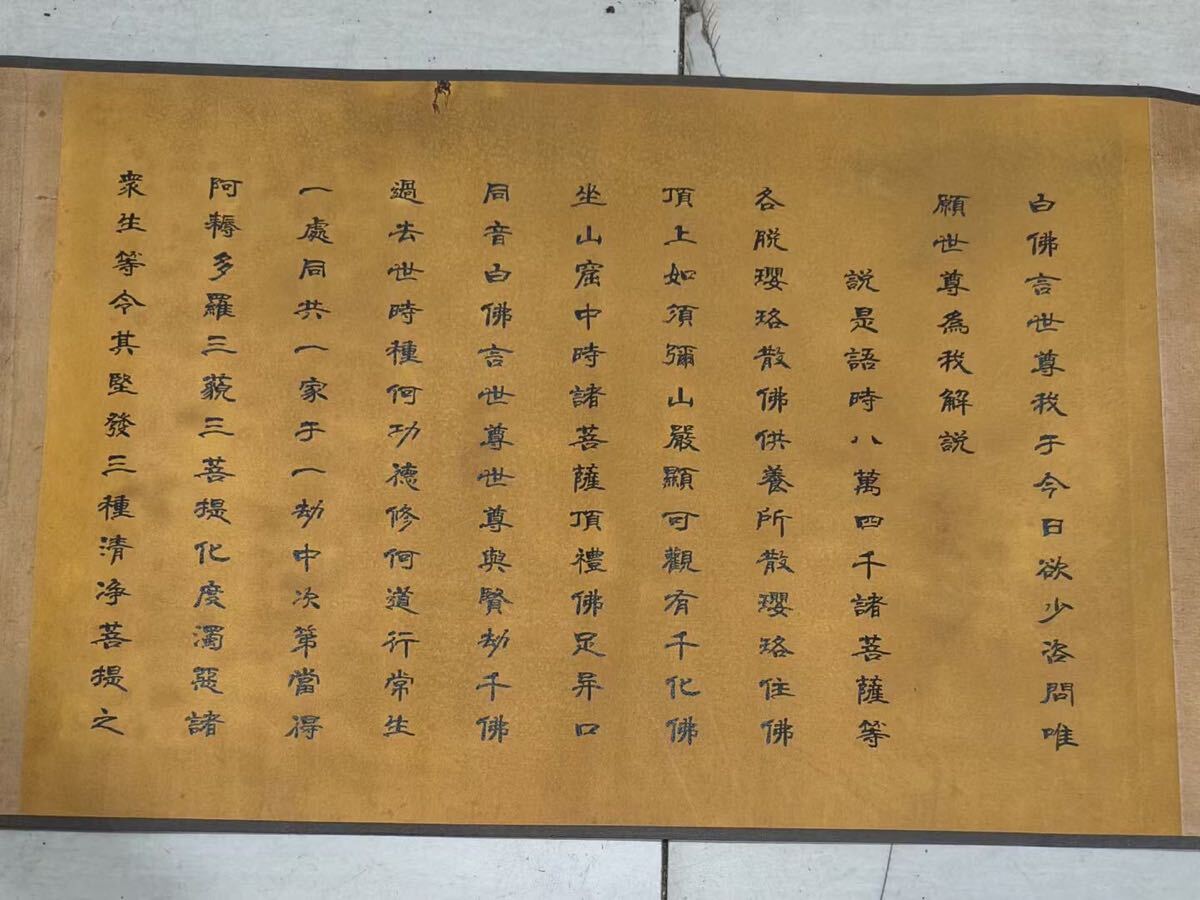 白佛言世尊我于今日欲少咨問唯
願世尊為我解説
説是語時八萬四千諸菩薩等
各脱瓔珞散佛供養所散瓔珞住佛
頂上如須彌山嚴顯可觀有千化佛
坐山窟中時諸菩薩頂禮佛足异口
同音白佛言世尊世尊與賢劫千佛
過去世時種何功德修何道行常生
一處同共一家于一劫中次第當得
阿耨多羅三藐三菩提化度濁惡諸
衆生等令其堅發三種清净菩提之